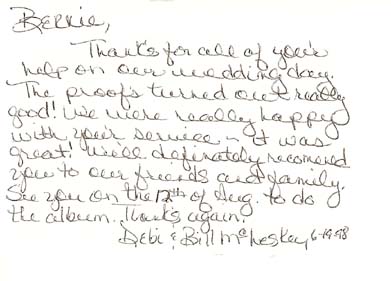 Bernie,
Thanks for all of your
help on our wedding day.
The proofs turned out really
good! We were really happy
with your service - it was
great! We'll definately recomend
you to our friends and family.
See you on the 12th of Aug. to do
the album. Thanks again!
Debi & Bill McLeskey, 6-19-98